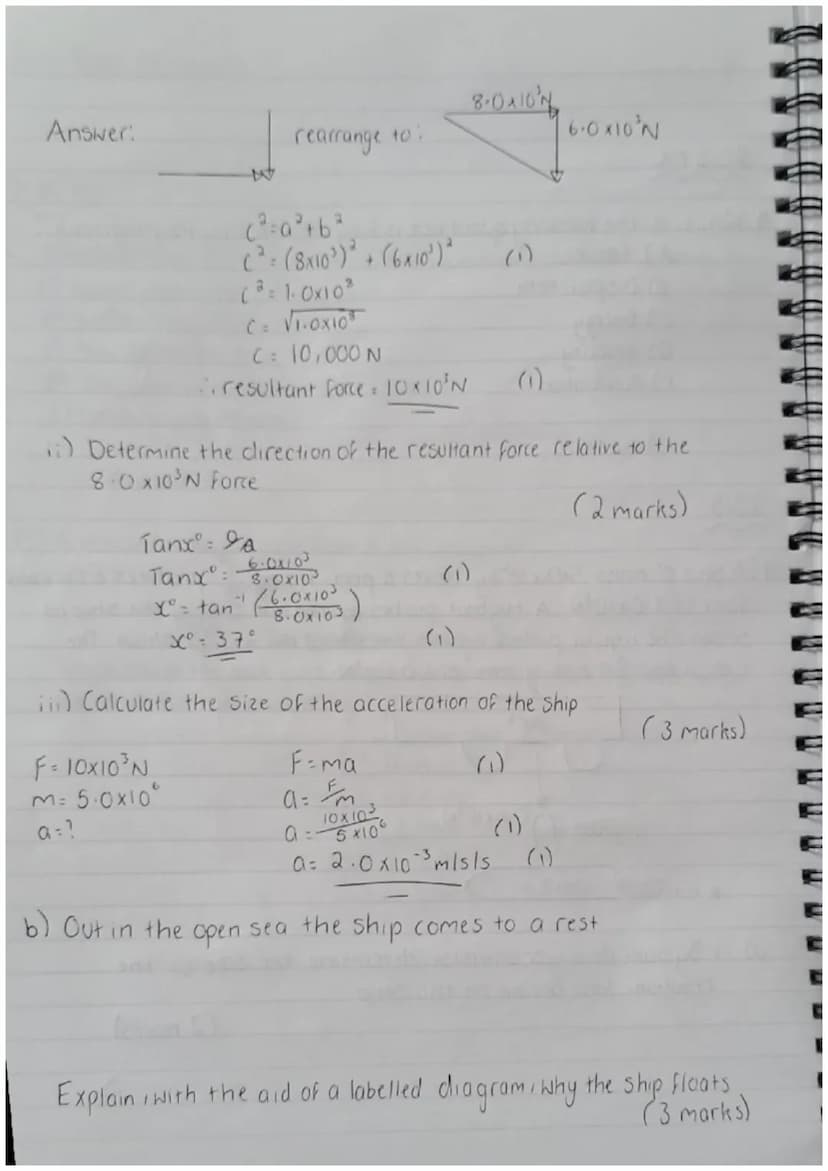 8.0x10³N
Answer: rearrange to: 6.0x10³N
c²=a²+b²
c²=(8x10³)²+(6x10³)² (1)
c²=1.0x10⁸
c=√1.0x10⁸
c=10,000N
∴ resultant force = 10x10³N (1)
ii) Determine the direction of the resultant force relative to the
8.0x10³N force
(2 marks)
Tanx°=O/A
Tanx°=6.0x10³/8.0x10³ (1)
x°=tan⁻¹(6.0x10³/8.0x10³)
x°=37° (1)
iii) Calculate the size of the acceleration of the ship
(3 marks)
F=10x10³N F=ma (1)
m=5.0x10⁶ a=F/m
a=? a=10x10³/5x10⁶ (1)
a=2.0x10⁻³m/s/s (1)
b) Out in the open sea the ship comes to a rest
Explain, with the aid of a labelled diagram, why the ship floats
(3 marks)